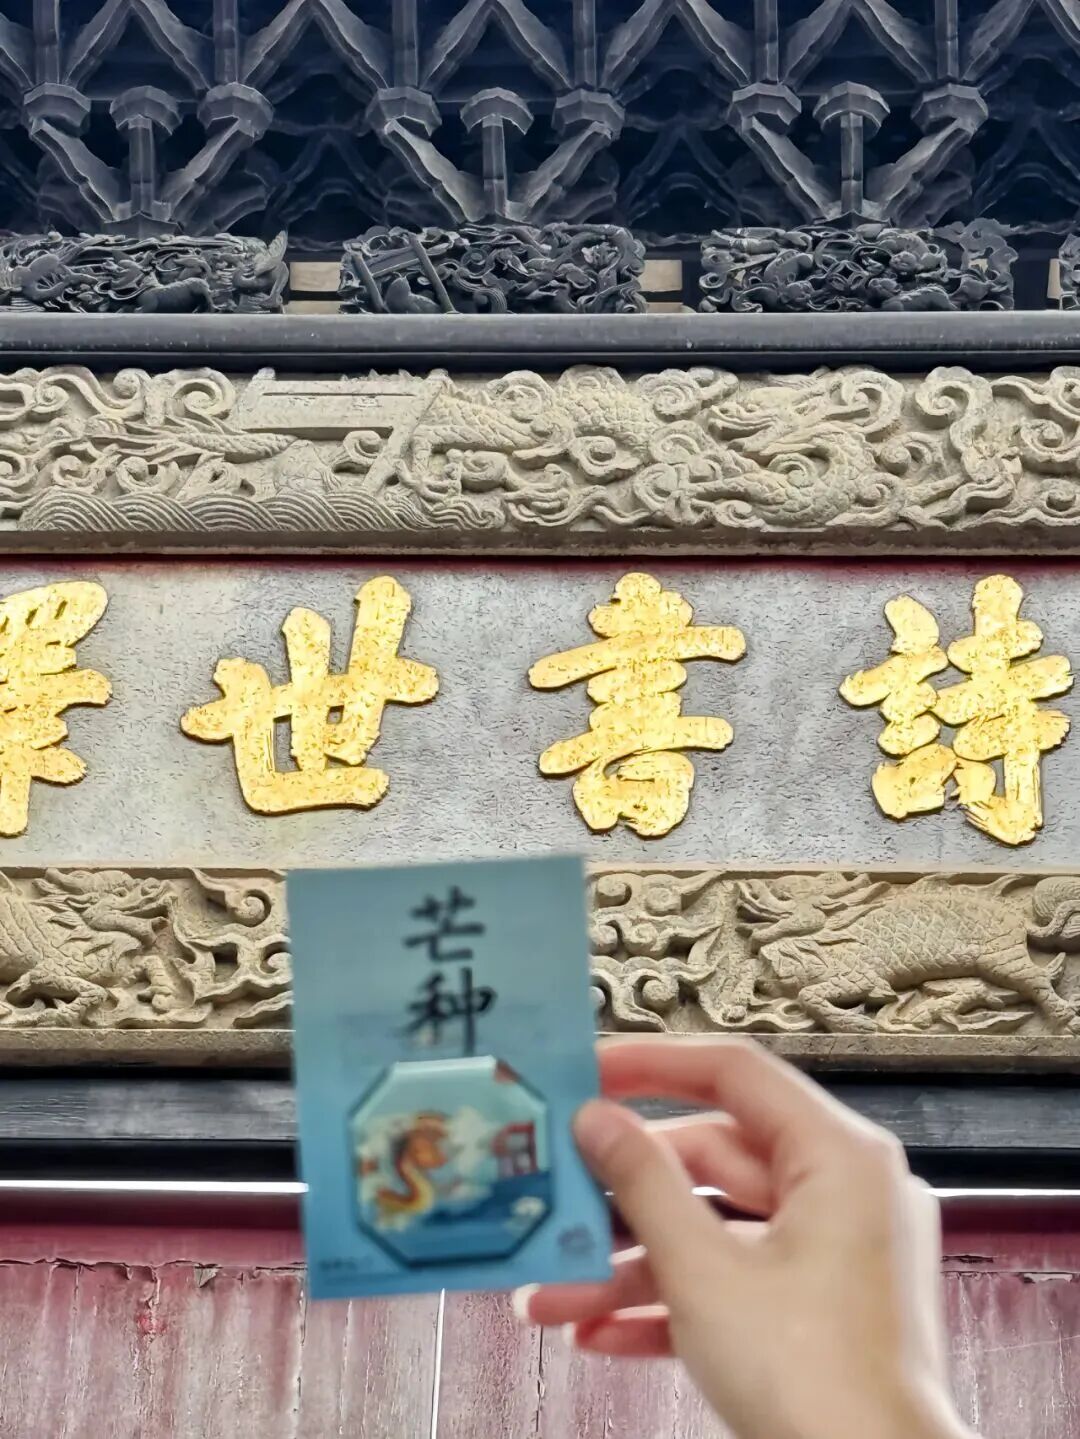 詩書世澤
芒
种